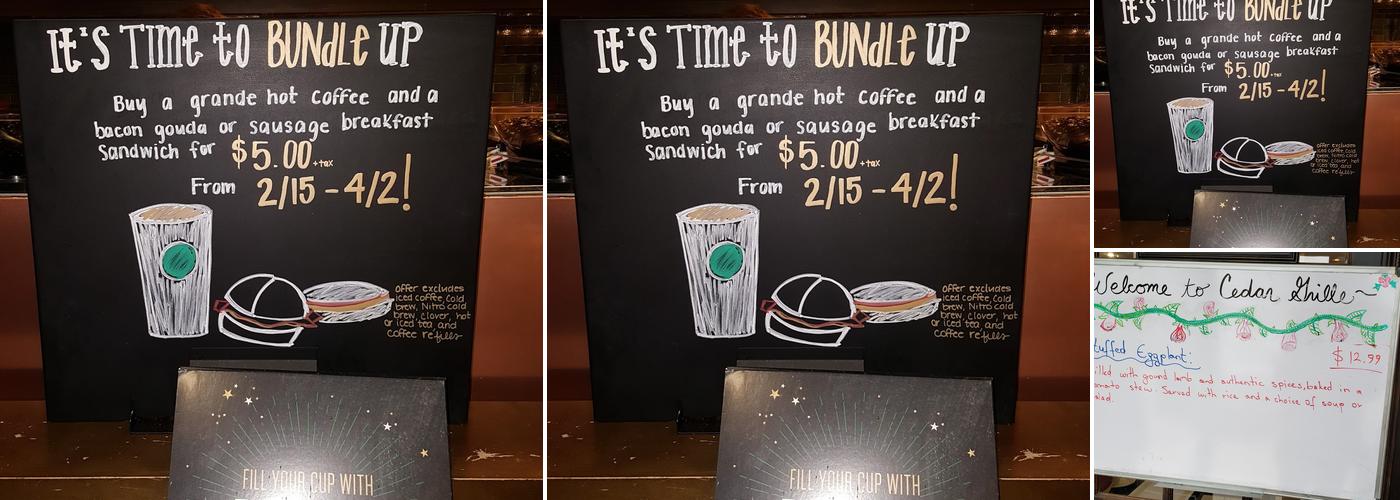 It's Time to BUNdLE UP
Buy a grande hot coffee and a
bacon gouda or sausage breakfast
Sandwich for $5.00 +tax
From 2/15 - 4/2!
offer excludes
iced coffee, cold
brew, Nitro cold
brew, clover, hot
or iced tea, and
coffee refills
FILL YOUR CUP WITH
It's Time to BUNdLE UP
Buy a grande hot coffee and a
bacon gouda or sausage breakfast
Sandwich for $5.00 +tax
From 2/15 - 4/2!
offer excludes
iced coffee, cold
brew, Nitro cold
brew, clover, hot
or iced tea, and
coffee refills
FILL YOUR CUP WITH
It's Time to BUNdLE UP
Buy a grande hot coffee and a
bacon gouda or sausage breakfast
Sandwich for $5.00 +tax
From 2/15 - 4/2!
offer excludes
iced coffee, cold
brew, Nitro cold
brew, clover, hot
or iced tea, and
coffee refills
Welcome to Cedar Grille
tuffed Eggplant:
$12.99
illed with gound lamb and authentic spices, baked in a
omato stew. Served with rice and a choice of soup or
alad.